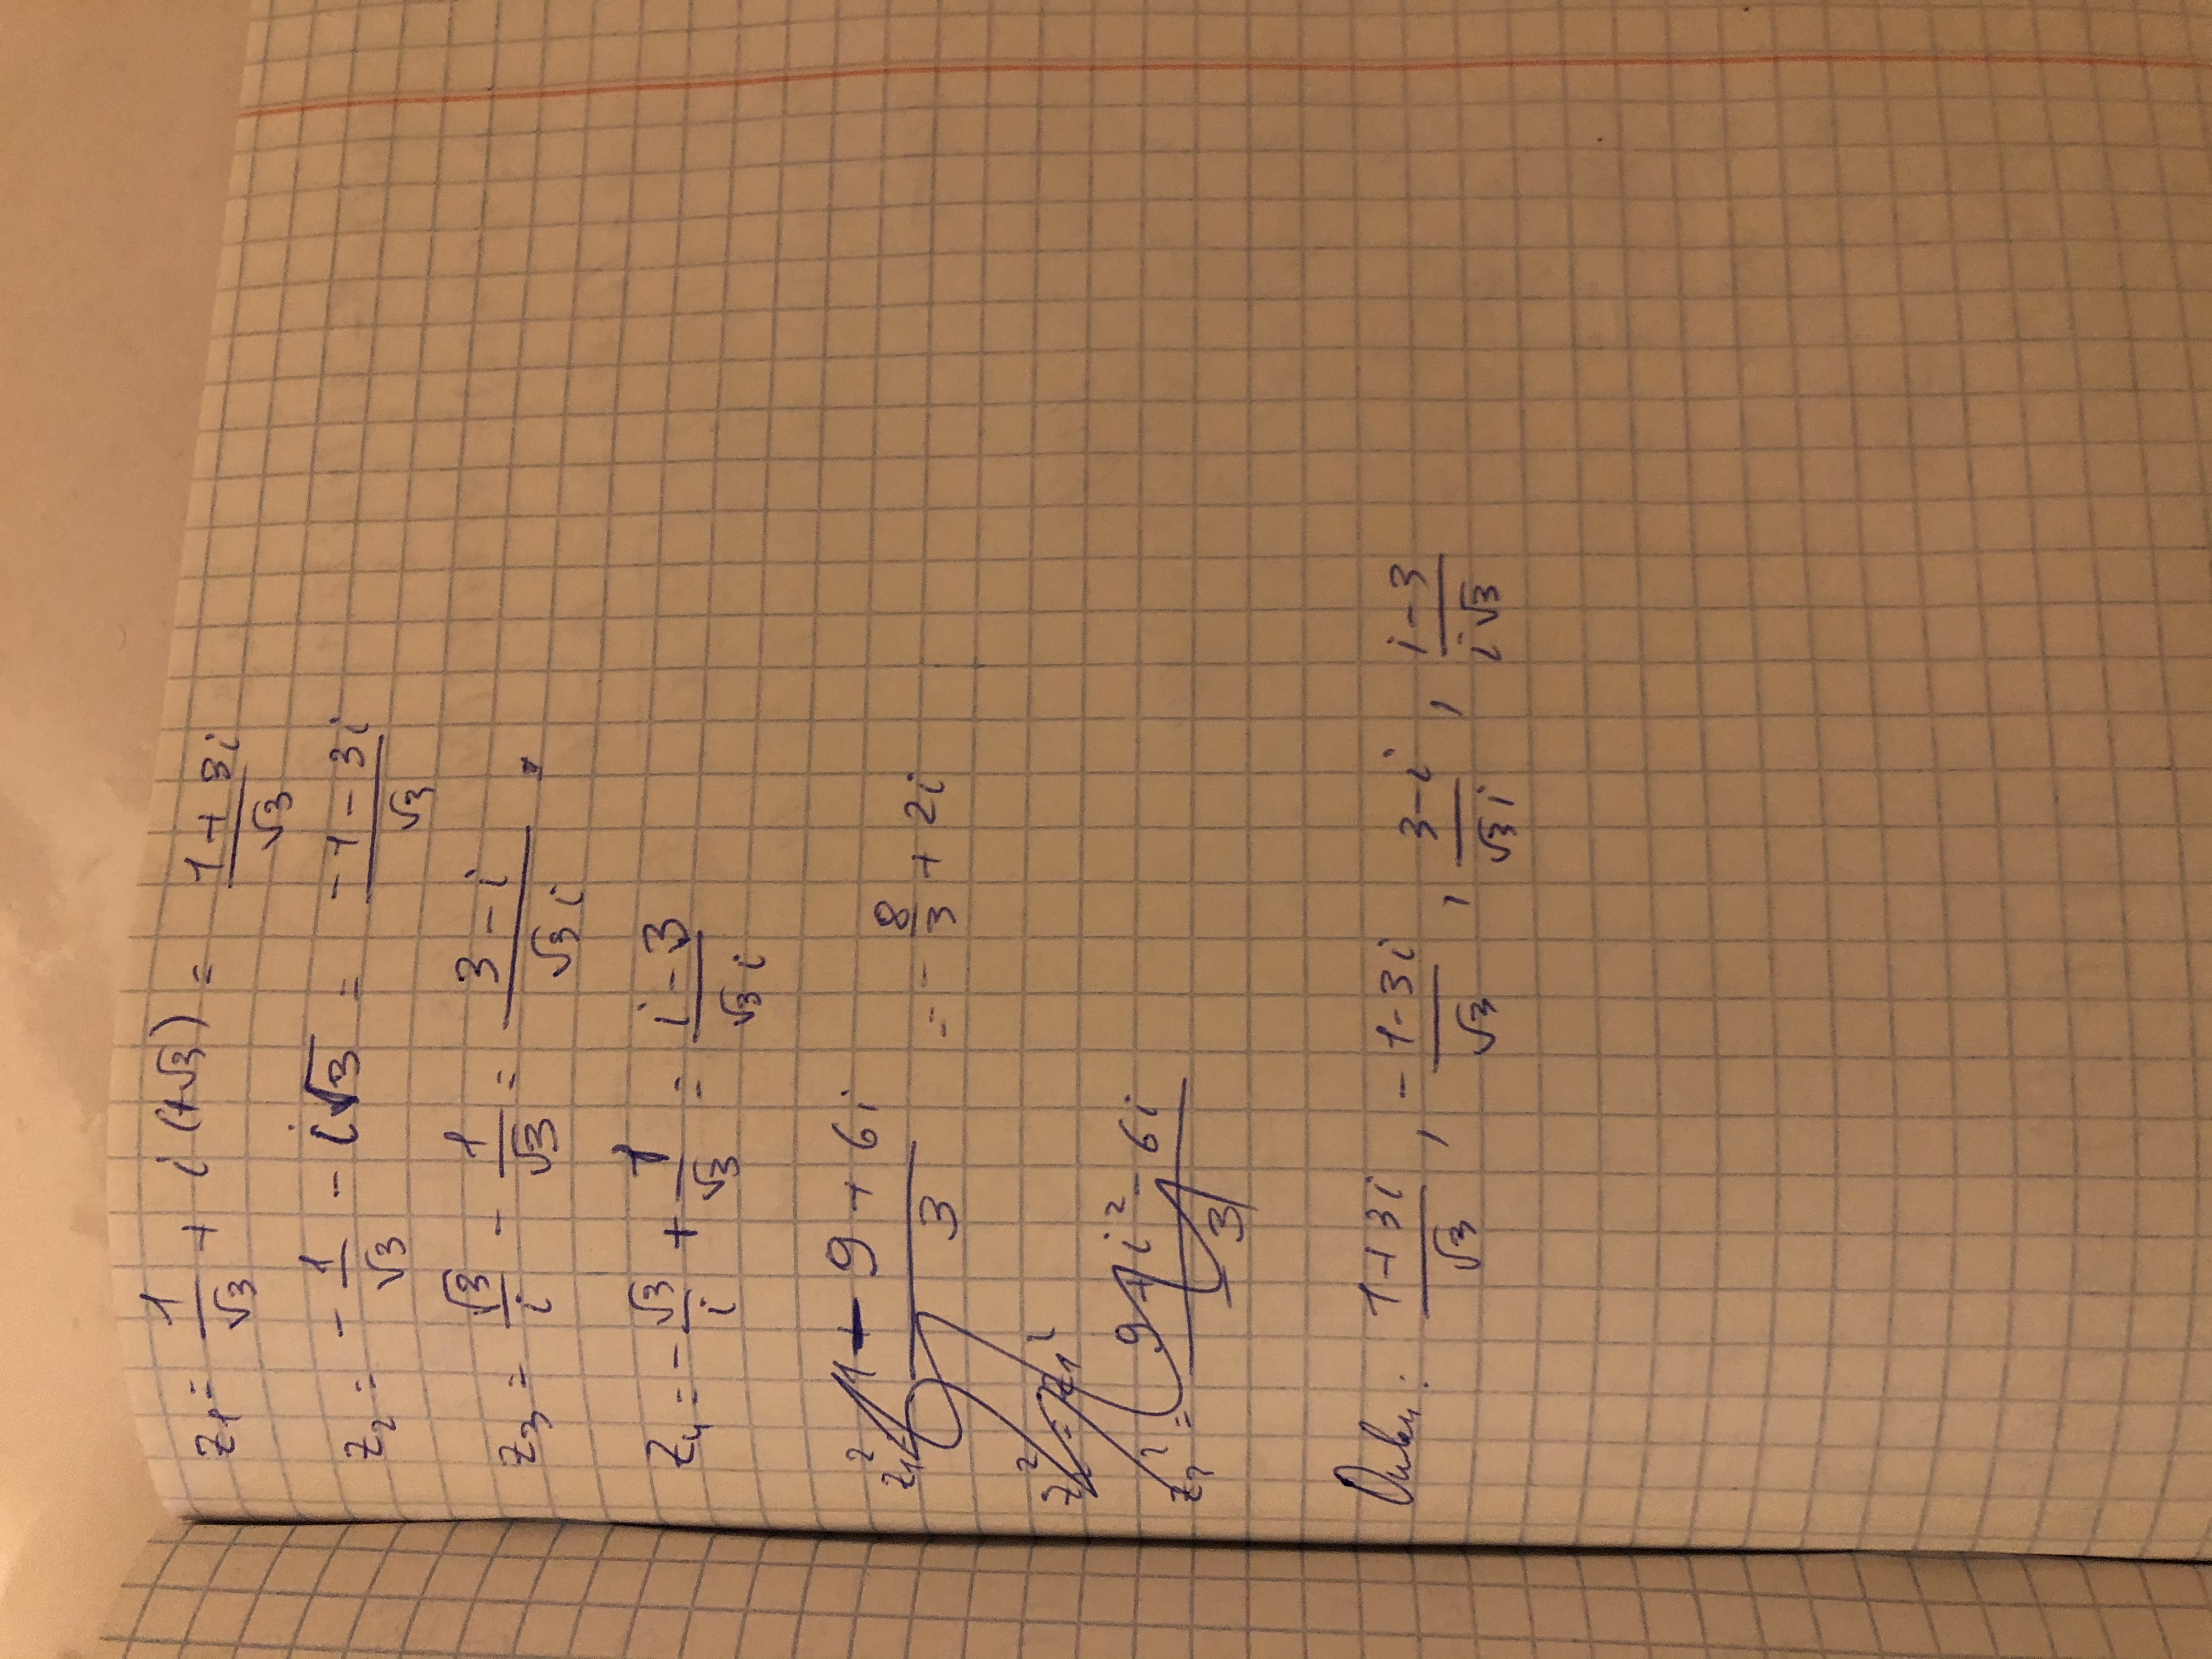 z₁ = 1/√3 + i (+√3) = (1 + 3i)/√3
z₂ = -1/√3 - i√3 = (-1 - 3i)/√3
z₃ = √3/i - 1/√3 = (3 - i)/(√3 i)
z₄ = -√3/i + 1/√3 = (i - 3)/(√3 i)
z₁² = (1 - 9 + 6i)/3 = -8/3 + 2i
z₂² = z₁²
z₃² = (9 + i² - 6i)/(-3)
(1 + 3i)/√3 , (-1 - 3i)/√3 , (3 - i)/(√3 i) , (i - 3)/(i√3)